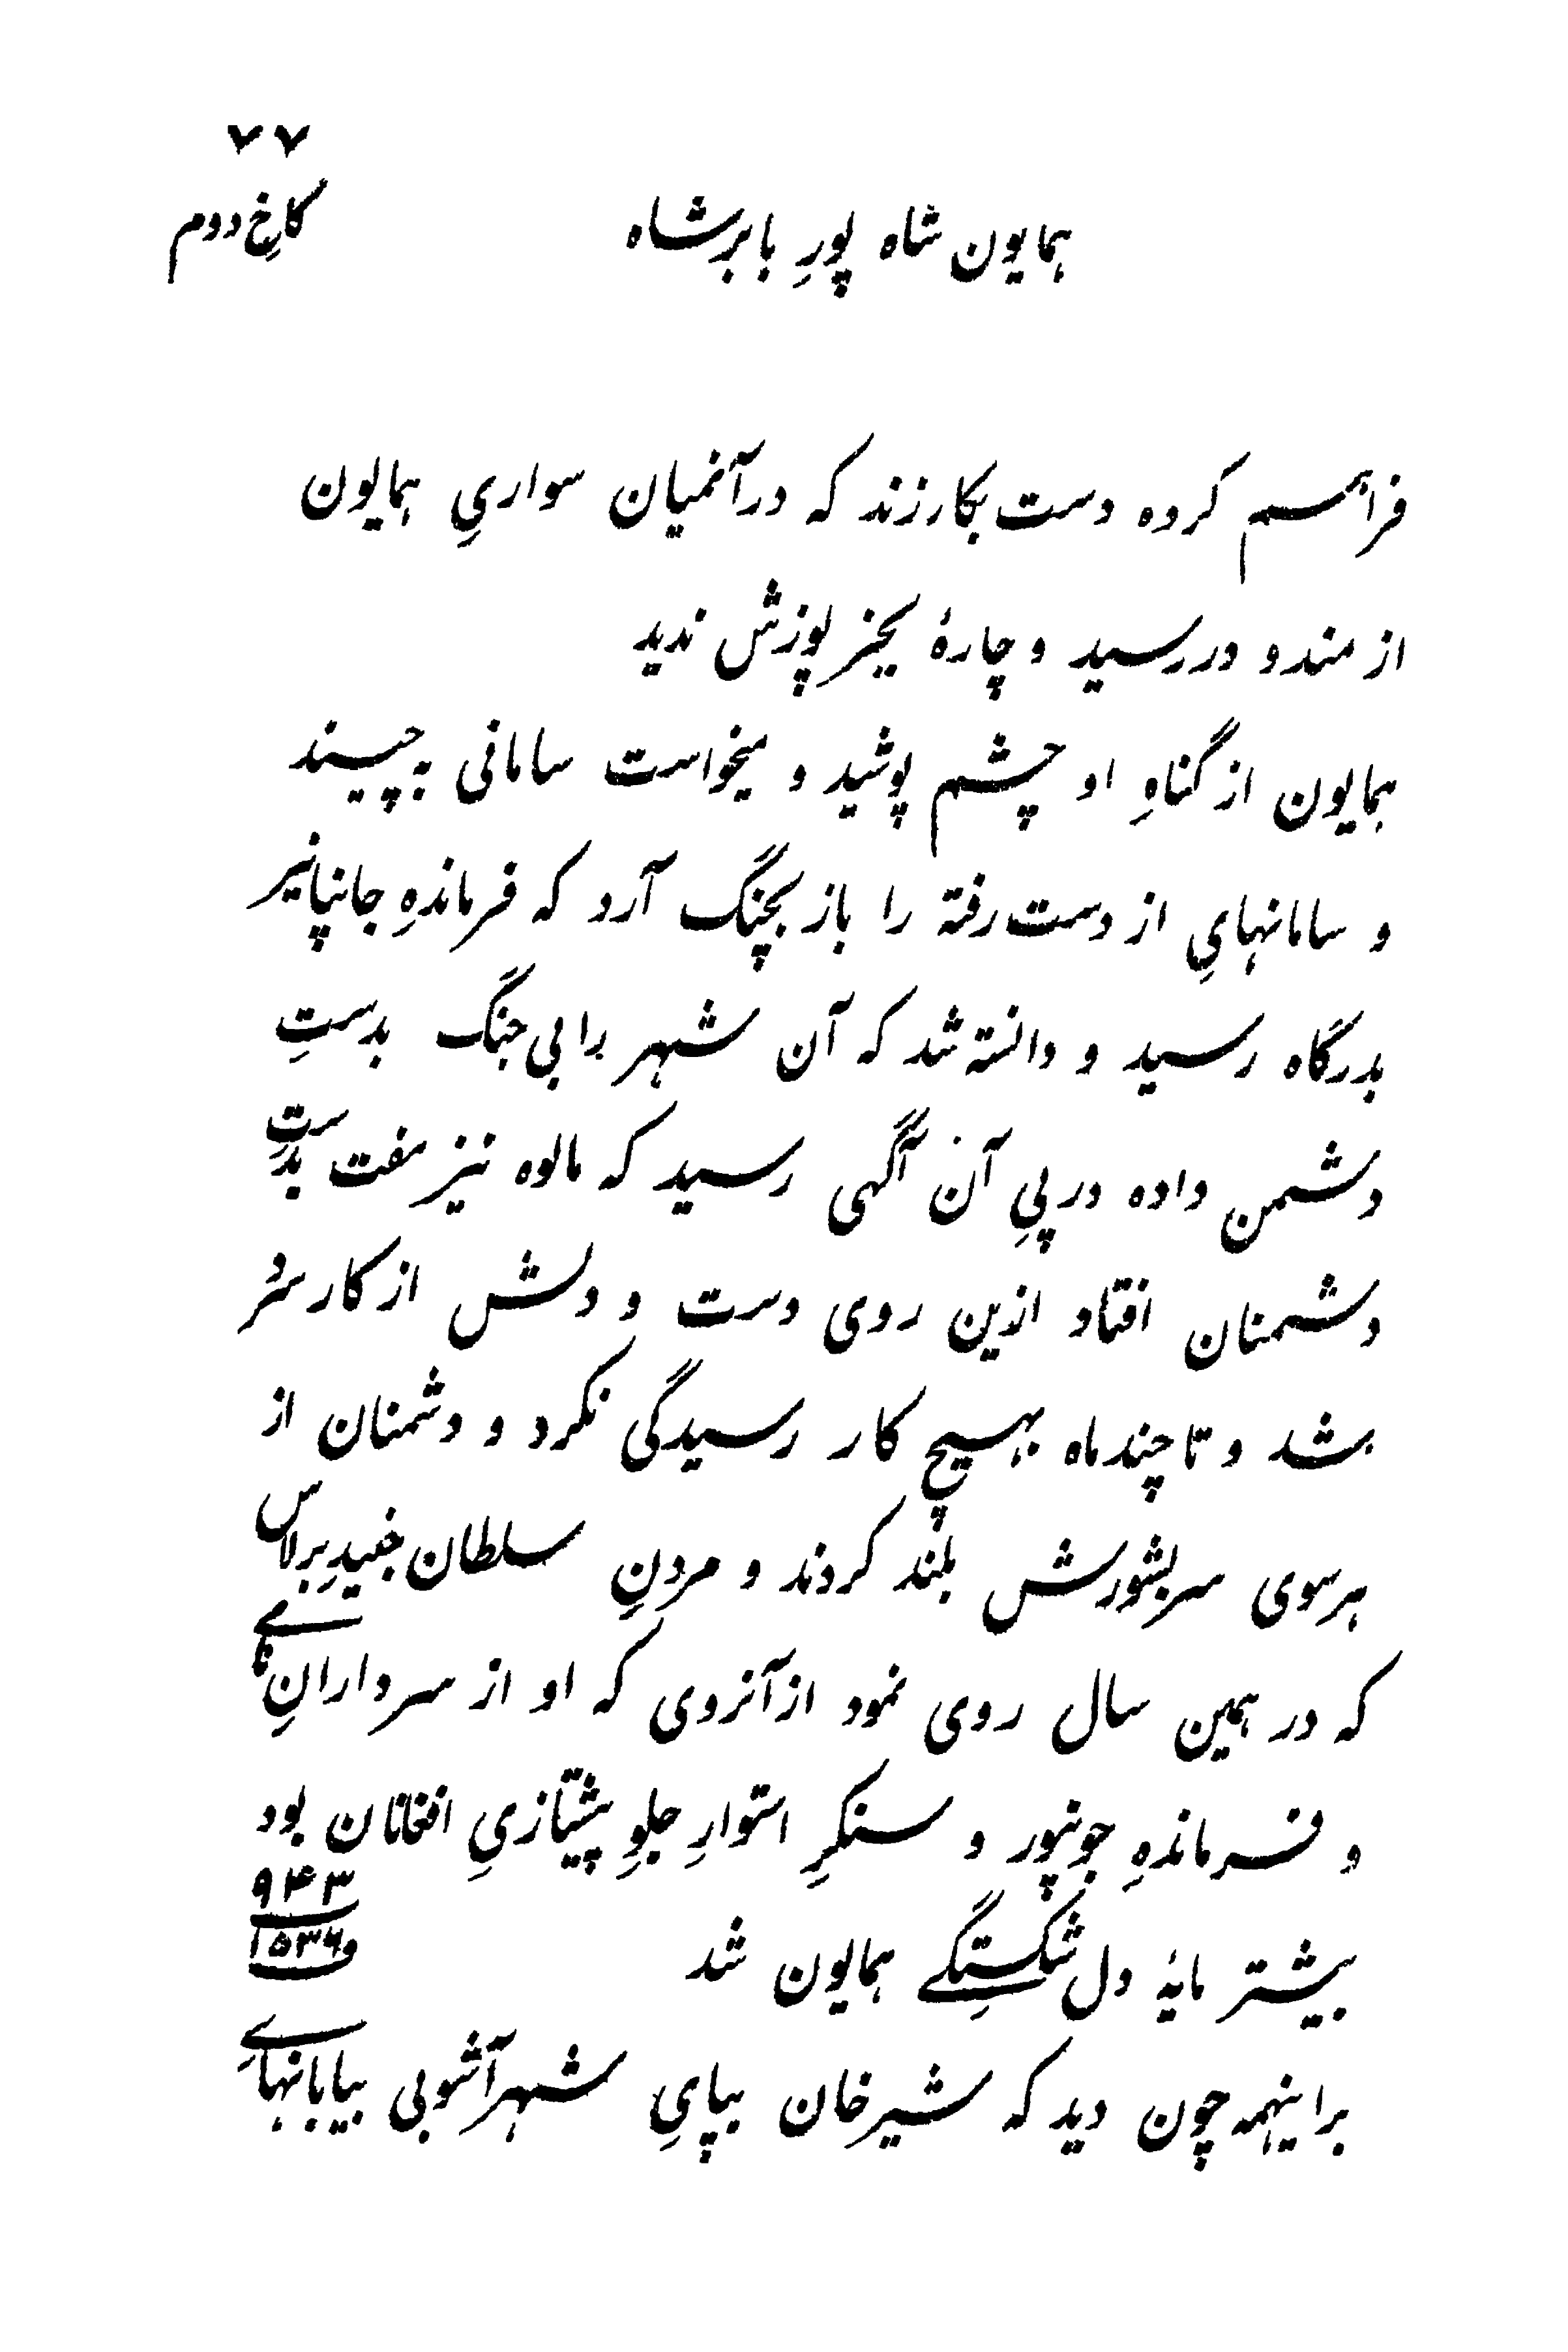 ۷۷
کاخِ دوم
همایون شاه پورِ بابرشاه
فراهم کرده دست بکار زند که درآنمیان سواریِ همایون
از مندو در رسید و چارهٔ بجز پوزش ندید
همایون از گناهِ او چشم پوشید و میخواست سامانی به چیند
و سامانهایِ از دست رفته را باز بچنگ آرد که فرماندهِ جانپانیر
بدرگاه رسید و دانسته شد که آن شهر را بی جنگ بدستِ
دشمن داده در پیِ آن آگهی رسید که مالوه نیز مفت بدستِ
دشمنان افتاد ازین روی دست و دلش از کار سرد
بشد و تا چند ماه بهیچ کار رسیدگی نکرد و دشمنان از
هر سوی سر بشورش بلند کردند و مردنِ سلطان جنیدِ برلاس
که در همین سال روی نمود از آنروی که او از سردارانِ نامی
و فرماندهِ جونپور و سنگرِ استوارِ جلوِ پیشتازیِ افغانان بود
۹۴۳
۱۵۳۶
بیشتر مایهٔ دل شکستگیِ همایون شد
بر اینهمه چون دید که شیرخان بپایِ شهرآشوبی بیابانهایِ